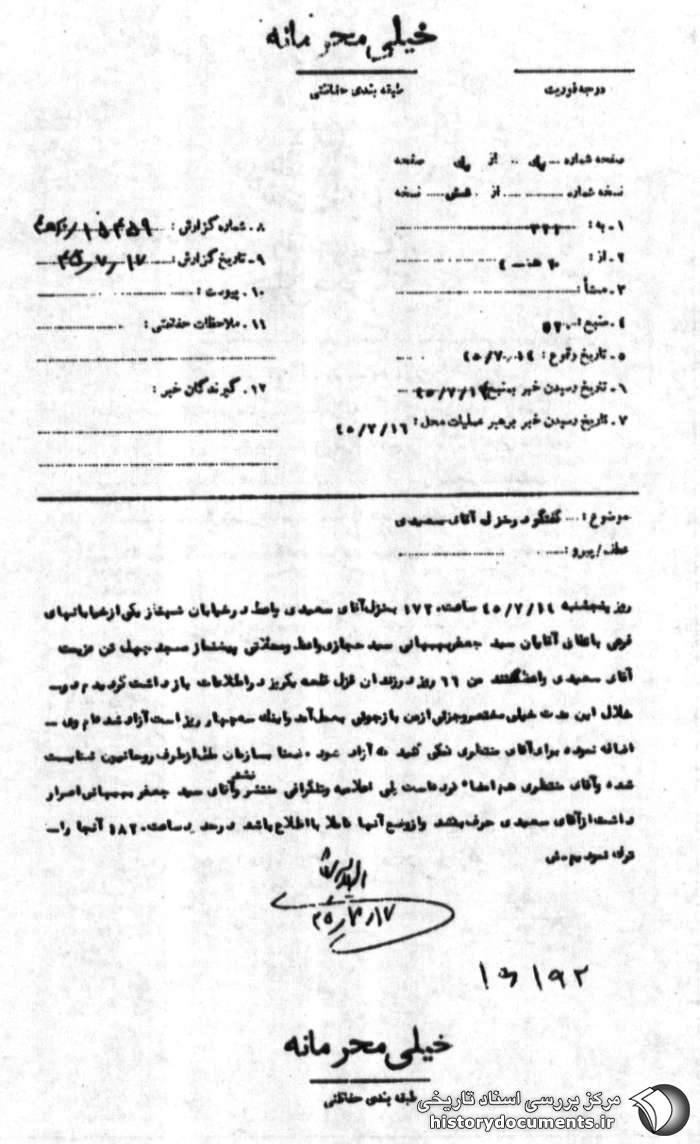 خیلی محرمانه
درجه فوریت
طبقه بندی حفاظتی
صفحه شماره ... یک ... از یک صفحه
نسخه شماره ... از شش نسخه
۱ـ به : ۳۲۲
۲ـ از : ۲۰ هـ ۴
۳ـ منشأ :
۴ـ منبع :
۵ـ تاریخ وقوع : ۴۵/۷/۱۴
۶ـ تاریخ رسیدن خبر بمنبع ۴۵/۷/۱۴
۷ـ تاریخ رسیدن خبر برهبر عملیات محل : ۴۵/۷/۱۶
۸ـ شماره گزارش : ۱۵۴۵۹
۹ـ تاریخ گزارش : ۴۵/۷/۱۷
۱۰ـ پیوست :
۱۱ـ ملاحظات حفاظتی :
۱۲ـ گیرندگان خبر :
موضوع : گفتگو در منزل آقای سعیدی
عطف/پیرو :
روز پنجشنبه ۴۵/۷/۱۴ ساعت ۱۷۳۰ بمنزل آقای سعیدی واعظ در خیابان یکی از خیابانهای
فرعی باتفاق آقایان سید جعفر بهبهانی سید حجازی واعظ و محلاتی پیشنماز مسجد چهل تن عزیمت
آقای سعیدی واعظ گفتند من ۶۶ روز در زندان قزل قلعه یکریز در اطلاعات بازداشت گردیدم و در
خلال این مدت خیلی مختصر و جزئی از من بازجوئی بعمل آمد و اینک سه چهار روز است آزاد شده‌ام وی ـ
اضافه نموده برای آقای منتظری فکر کنید که آزاد شود ضمنا بسازمان از طرف روحانیون شکایت
شده و آقای منتظری هم امضاء کرده است ولی اعلامیه و تلگرافی منتشر نشده و آقای سید جعفر بهبهانی اصرار
داشت از آقای سعیدی حرف بکشد و از وضع آنها کاملا با اطلاع باشد در حدود ساعت ۱۸۳۰ آنجا را ـ
ترک نمودیم
۴۵/۷/۱۷
خیلی محرمانه
طبقه بندی حفاظتی
مرکز بررسی اسناد تاریخی
historydocuments.ir